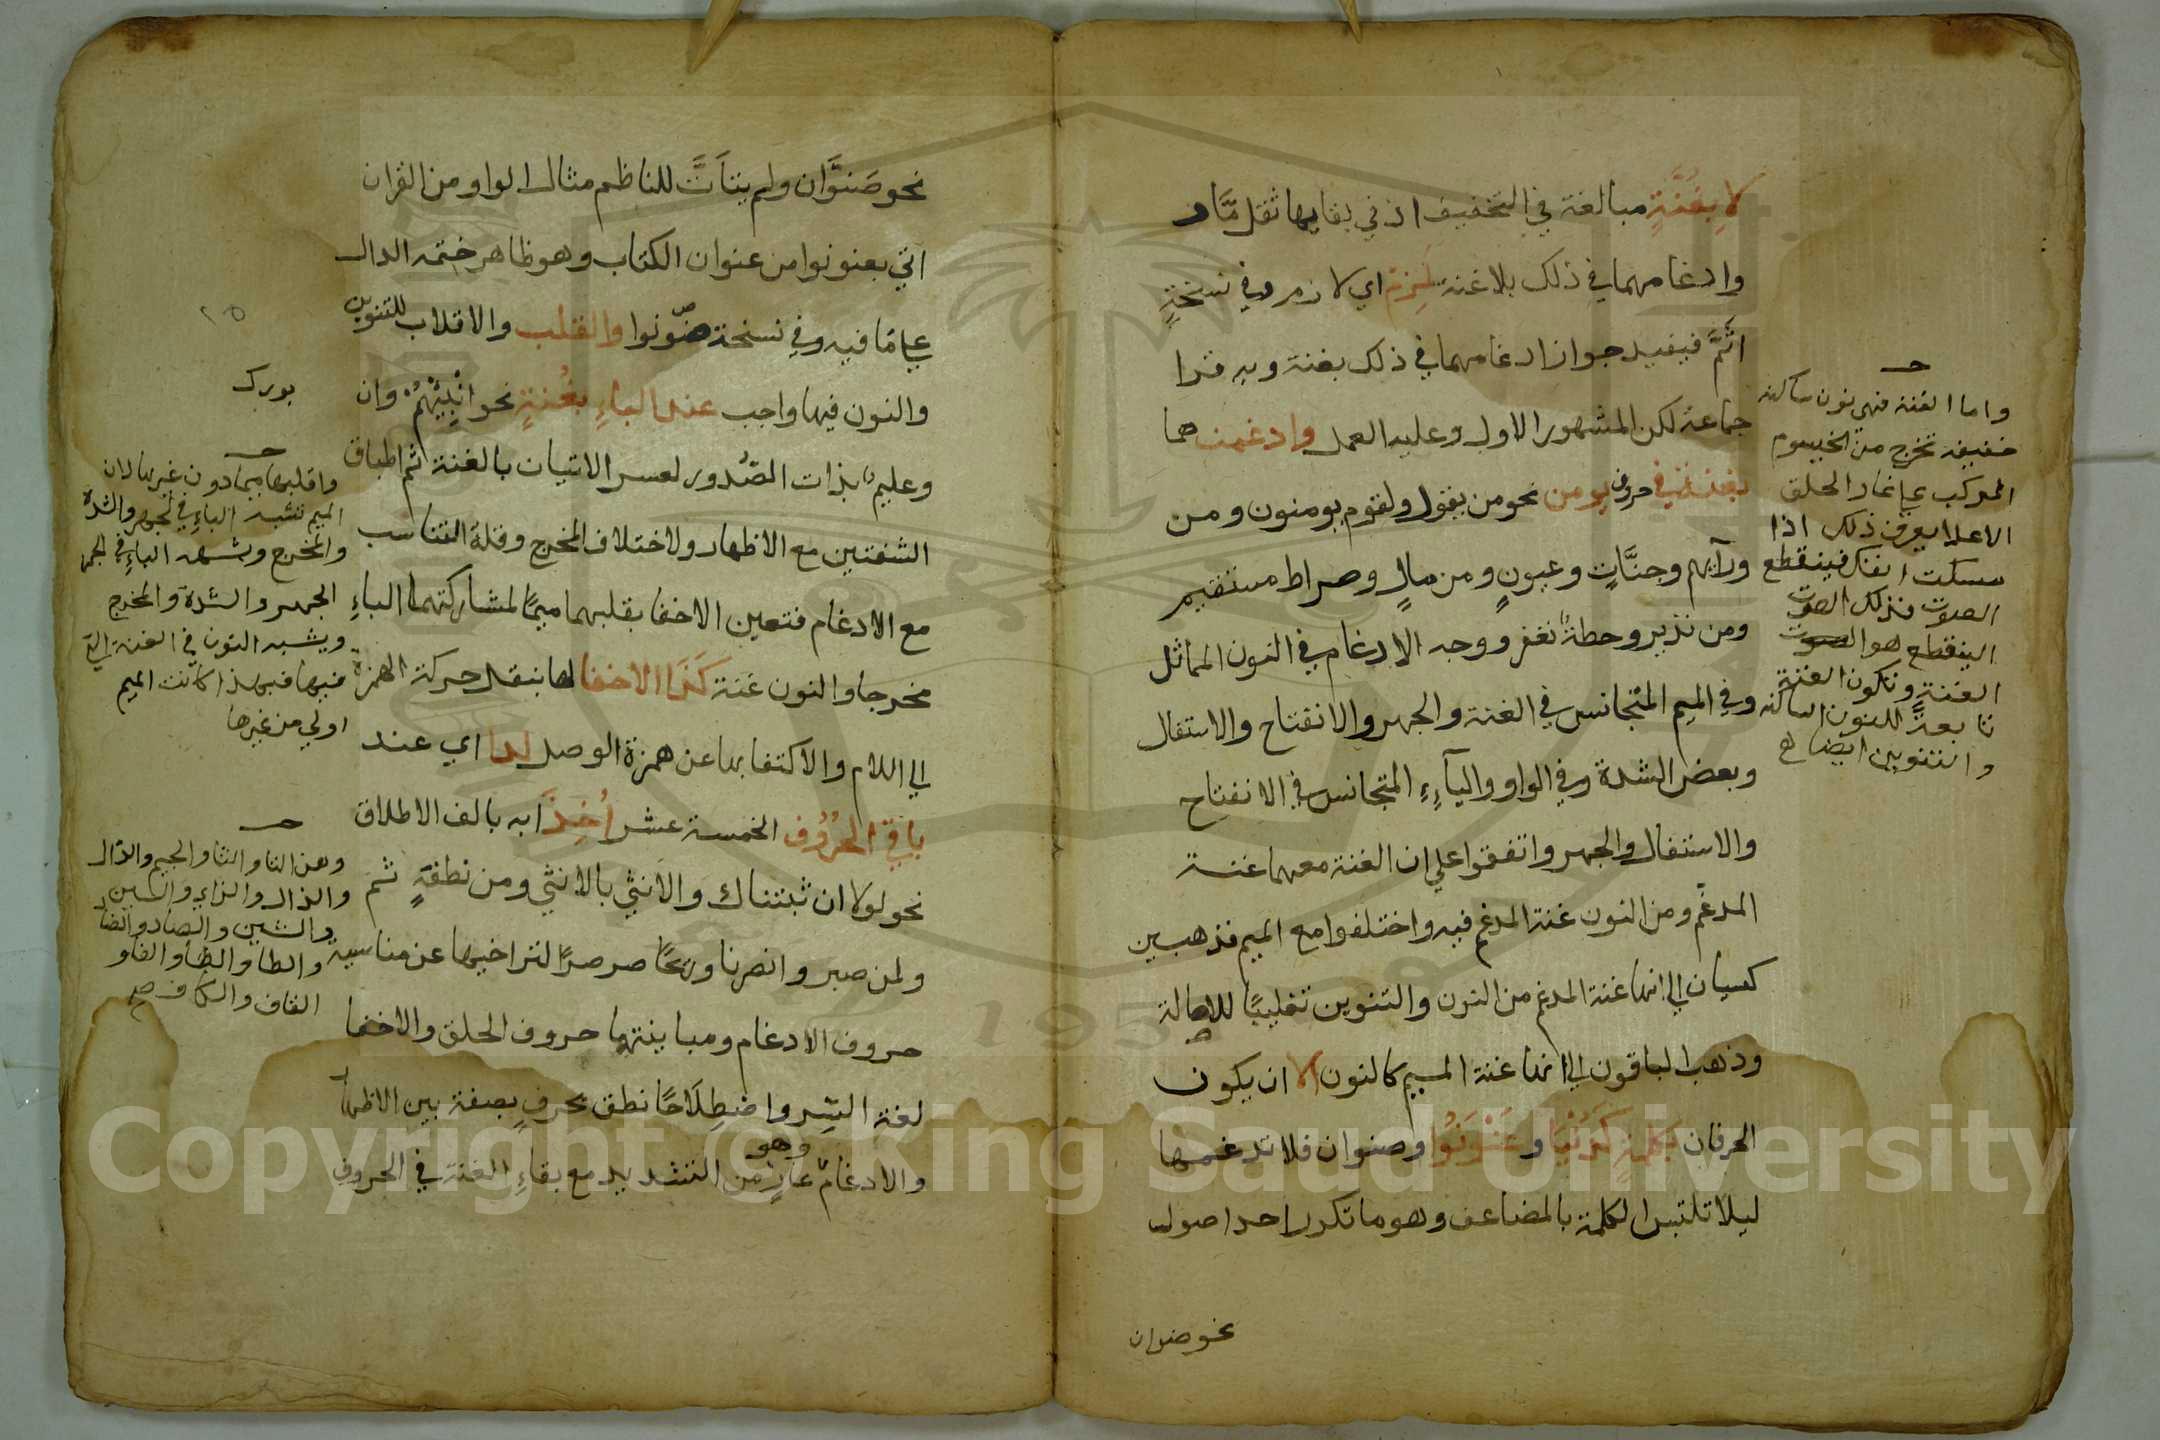 لا بِغُنَّةٍ مبالغة في التخفيف اذ في بقايها ثقل مَّا و
وادغامهما في ذلك بلا غنة لَزِم اي لازم وفي نسخةٍ
اتَمَّ فيفيد جواز ادغامهما في ذلك بغنة وبه قرا
جماعة لكن المشهور الاول وعليه العمل وادغمن هما
بغنة في حروف يومن نحو من يقول ولقوم يومنون ومن
ورآيهم وجنَّاتٍ وعيونٍ ومن مالٍ وصراط مستقيم
ومن نذير وحطةٌ نغفر ووجه الادغام في النون التماثل
وفي الميم التجانس في الغنة والجهر والانفتاح والاستفال
وبعض الشدة وفي الواو واليآءِ التجانس في الانفتاح
والاستفال والجهر واتفقوا علي ان الغنة معهما غنة
المدغم ومن النون غنة المدغم فيه واختلفوا مع الميم فذهب بن
كسيان الي انها غنة المدغم من النون والتنوين تغليبًا للاصالة
وذهب الباقون الي انها غنة الميم كالنون الا ان يكون
الحرفان بكلمةٍ كدُنْيَا وعَنْوَنُوا وصنوان فلا تدغمها
ليلا تلتبس الكلمة بالمضاعف وهو ما تكرر احد اصوله
نحو صنوان
حـ
واما الغنة فهي نون ساكنة
خفيفة تخرج من الخيسوم
المركب علي غار الحلق
الاعلا يعرف ذلك اذا
مسكت انفك فينقطع
الصوت فذلك الصوت
الينقطع هو الصوت
الغنة وتكون الغنة
تابعةً للنون الساكنة
والتنوين ايضا
نحو صَنوَّان ولم يتأتَّ للناظم مثال الواو من القران
اتي بعنونوا من عنوان الكتاب وهو ظاهر ختمه الدال
علي ما فيه وفي نسخة صَوّنوا والقلب والاقلاب للتنوين
والنون فيها واجب عند الباءِ بغُنةٍ نحو انْبِئْهُمْ وان
وعليم بذات الصُدور لعسر الاتيان بالغنة ثم اطباق
الشفتين مع الاظهار ولاختلاف المخرج وقلة التناسب
مع الادغام فتعين الاخفا بقلبهما ميمًا لمشاركتهما الباءِ
مخرجا والنون غنة كَذَا الاخفا لها بنقل حركة الهمزة
الي اللام والاكتفا بها عن همزة الوصل لدا اي عند
باقي الحُرُوف الخمسة عشر أُخِذَا به بالف الاطلاق
نحو لولا ان ثبتناك والانثي بالانثي ومن نطفةٍ ثم
ولمن صبر وانصرنا وريحًا صرصرًا لتراخيها عن مناسبة
حروف الادغام ومباينتها حروف الحلق والاخفا
لغة الستر واصْطِلَاحًا نطق بحرفٍ بصفة بين الاظهار
وهو
والادغام عارٍ من التشديد مع بقاءِ الغنة في الحروف
٢٥
بورك
حـ
واقلبها ميما دون غيرها لان
الميم تشبه الباءِ في الجهر والشدة
والمخرج وتشبه الباءِ في الجهر
الجهر والشدة والمخرج
ويشبه النون في الغنة التي
فيها فبهذا كانت الميم
اولي من غيرها
حـ
وهن التا والثا والجيم والدال
والذال والزاي والسين
والشين والصاد والضاد
والطا والظا والفا و
القاف والكاف صح